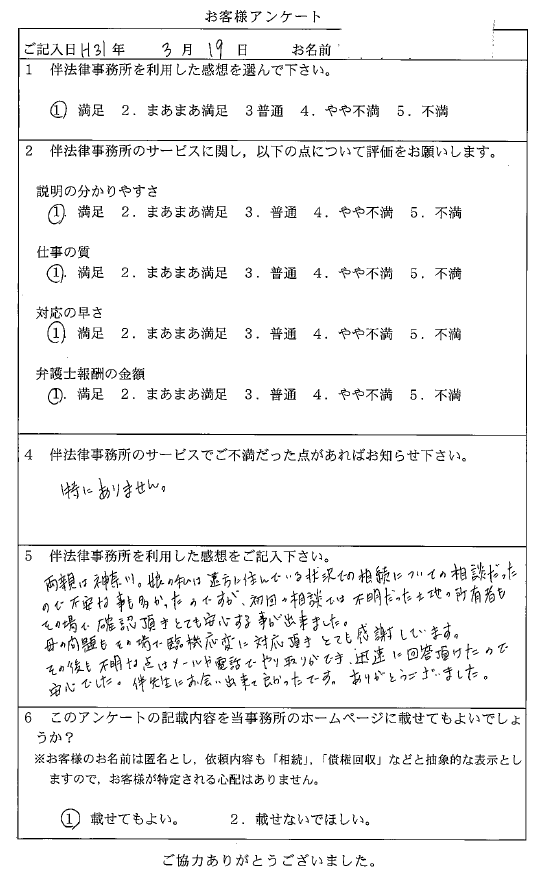 お客様アンケート
ご記入日 H31 年 3 月 19 日 お名前
1 伴法律事務所を利用した感想を選んで下さい。
1. 満足 2．まあまあ満足 3 普通 4．やや不満 5．不満
2 伴法律事務所のサービスに関し，以下の点について評価をお願いします。
説明の分かりやすさ
1. 満足 2．まあまあ満足 3．普通 4．やや不満 5．不満
仕事の質
1. 満足 2．まあまあ満足 3．普通 4．やや不満 5．不満
対応の早さ
1. 満足 2．まあまあ満足 3．普通 4．やや不満 5．不満
弁護士報酬の金額
1. 満足 2．まあまあ満足 3．普通 4．やや不満 5．不満
4 伴法律事務所のサービスでご不満だった点があればお知らせ下さい。
特にありません。
5 伴法律事務所を利用した感想をご記入下さい。
両親は神奈川。娘の私は遠方に住んでいる状況での相続についての相談だった
ので不安な事も多かったのですが、初回の相談では不明だった土地の所有者も
その場で確認頂きとても安心する事が出来ました。
母の問題もその場で臨機応変に対応頂きとても感謝しています。
その後も不明な点はメールや電話でやり取りができ、迅速に回答頂けたので
安心でした。伴先生にお会い出来て良かったです。ありがとうございました。
6 このアンケートの記載内容を当事務所のホームページに載せてもよいでしょ
うか？
※お客様のお名前は匿名とし，依頼内容も「相続」，「債権回収」などと抽象的な表示とし
ますので，お客様が特定される心配はありません。
1 載せてもよい。 2．載せないでほしい。
ご協力ありがとうございました。